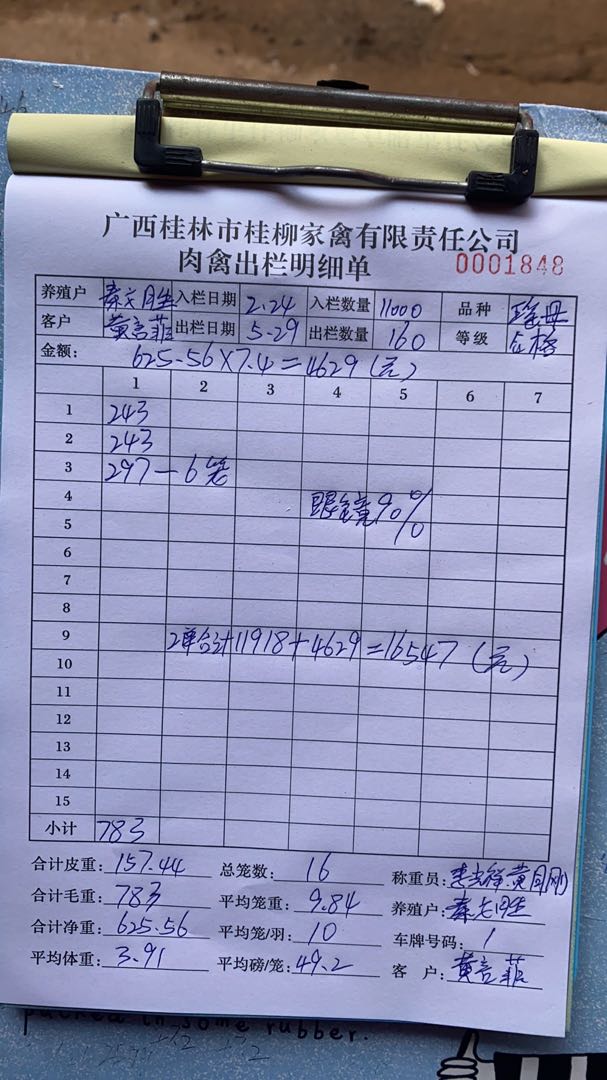 广西桂林市桂柳家禽有限责任公司
肉禽出栏明细单 0001848
养殖户 秦文胜 入栏日期 2.24 入栏数量 11000 品种 瑶母
客户 黄言菲 出栏日期 5-29 出栏数量 160 等级 合格
金额: 625.56×7.4=4629(元)
1 2 3 4 5 6 7
1 243
2 243
3 297-6笼
4 眼镜90%
5
6
7
8
9 2单合计11918+4629=16547(元)
10
11
12
13
14
15
小计 783
合计皮重: 157.44 总笼数: 16 称重员:
合计毛重: 783 平均笼重: 9.84 养殖户: 秦文胜
合计净重: 625.56 平均笼/羽: 10 车牌号码: 1
平均体重: 3.91 平均磅/笼: 49.2 客户: 黄言菲
some rubber.